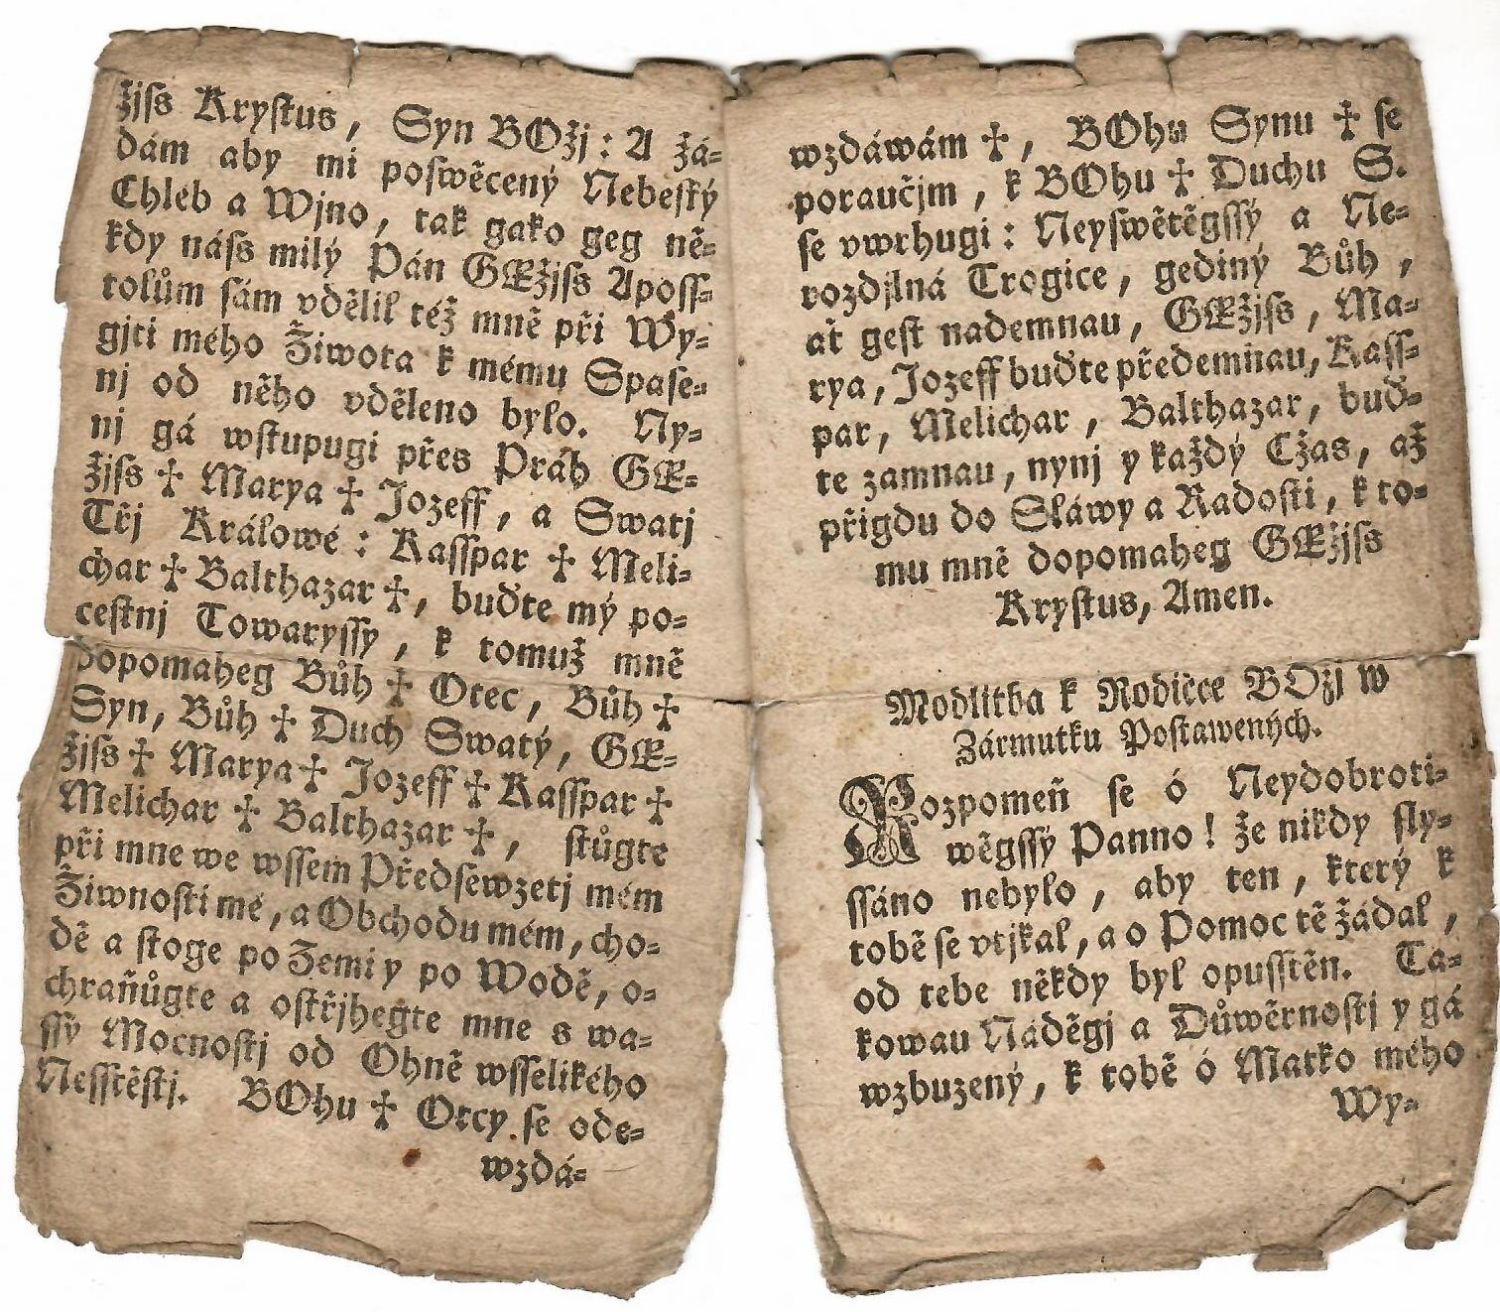 žjſs Kryſtus, Syn BOžj: A žá⸗
dám aby mi poſwěcený Nebeſký
Chleb a Wjno, tak gako geg ně⸗
kdy náſs milý Pán GEžjſs Apoſſ⸗
tolům ſám vdělil též mně při Wy⸗
gjti mého Žiwota k mému Spaſe⸗
nj od něho vděleno bylo. Ny⸗
nj gá wſtupugi přes Práh GE⸗
žjſs ✢ Marya ✢ Jozeff, a Swatj
Třj Králowé: Kaſſpar ✢ Meli⸗
char ✢ Balthazar ✢, buďte mý po⸗
ceſtnj Towaryſſy, k tomuž mně
dopomaheg Bůh ✢ Otec, Bůh ✢
Syn, Bůh ✢ Duch Swatý, GE⸗
žjſs ✢ Marya ✢ Jozeff ✢ Kaſſpar ✢
Melichar ✢ Balthazar ✢, ſtůgte
při mne we wſſem Předſewzetj mém
Žiwnoſti mé, a Obchodu mém, cho⸗
dě a ſtoge po Zemi y po Wodě, o⸗
chraňůgte a oſtřjhegte mne s wa⸗
ſſý Mocnoſtj od Ohně wſſelikého
Neſſtěſtj. BOhu ✢ Otcy ſe ode⸗
wzdá⸗
wzdáwám ✢, BOhu Synu ✢ ſe
poraučjm, k BOhu ✢ Duchu S.
ſe vwrhugi: Neyſwětěgſſý a Ne⸗
rozdjlná Trogice, gediný Bůh,
ať geſt nademnau, GEžjſs, Ma⸗
rya, Jozeff buďte předemnau, Kaſſ⸗
par, Melichar, Balthazar, buď⸗
te zamnau, nynj y každý Cžas, až
přigdu do Sláwy a Radoſti, k to⸗
mu mně dopomaheg GEžjſs
Kryſtus, Amen.
Modlitba k Rodičce BOžj w
Zármutku Poſtawených.
Rozpomeň ſe ó Neydobroti⸗
wěgſſý Panno! že nikdy ſly⸗
ſſáno nebylo, aby ten, který k
tobě ſe vtjkal, a o Pomoc tě žádal,
od tebe někdy byl opuſſtěn. Ta⸗
kowau Náděgj a Důwěrnoſtj y gá
wzbuzený, k tobě ó Matko mého
Wy⸗